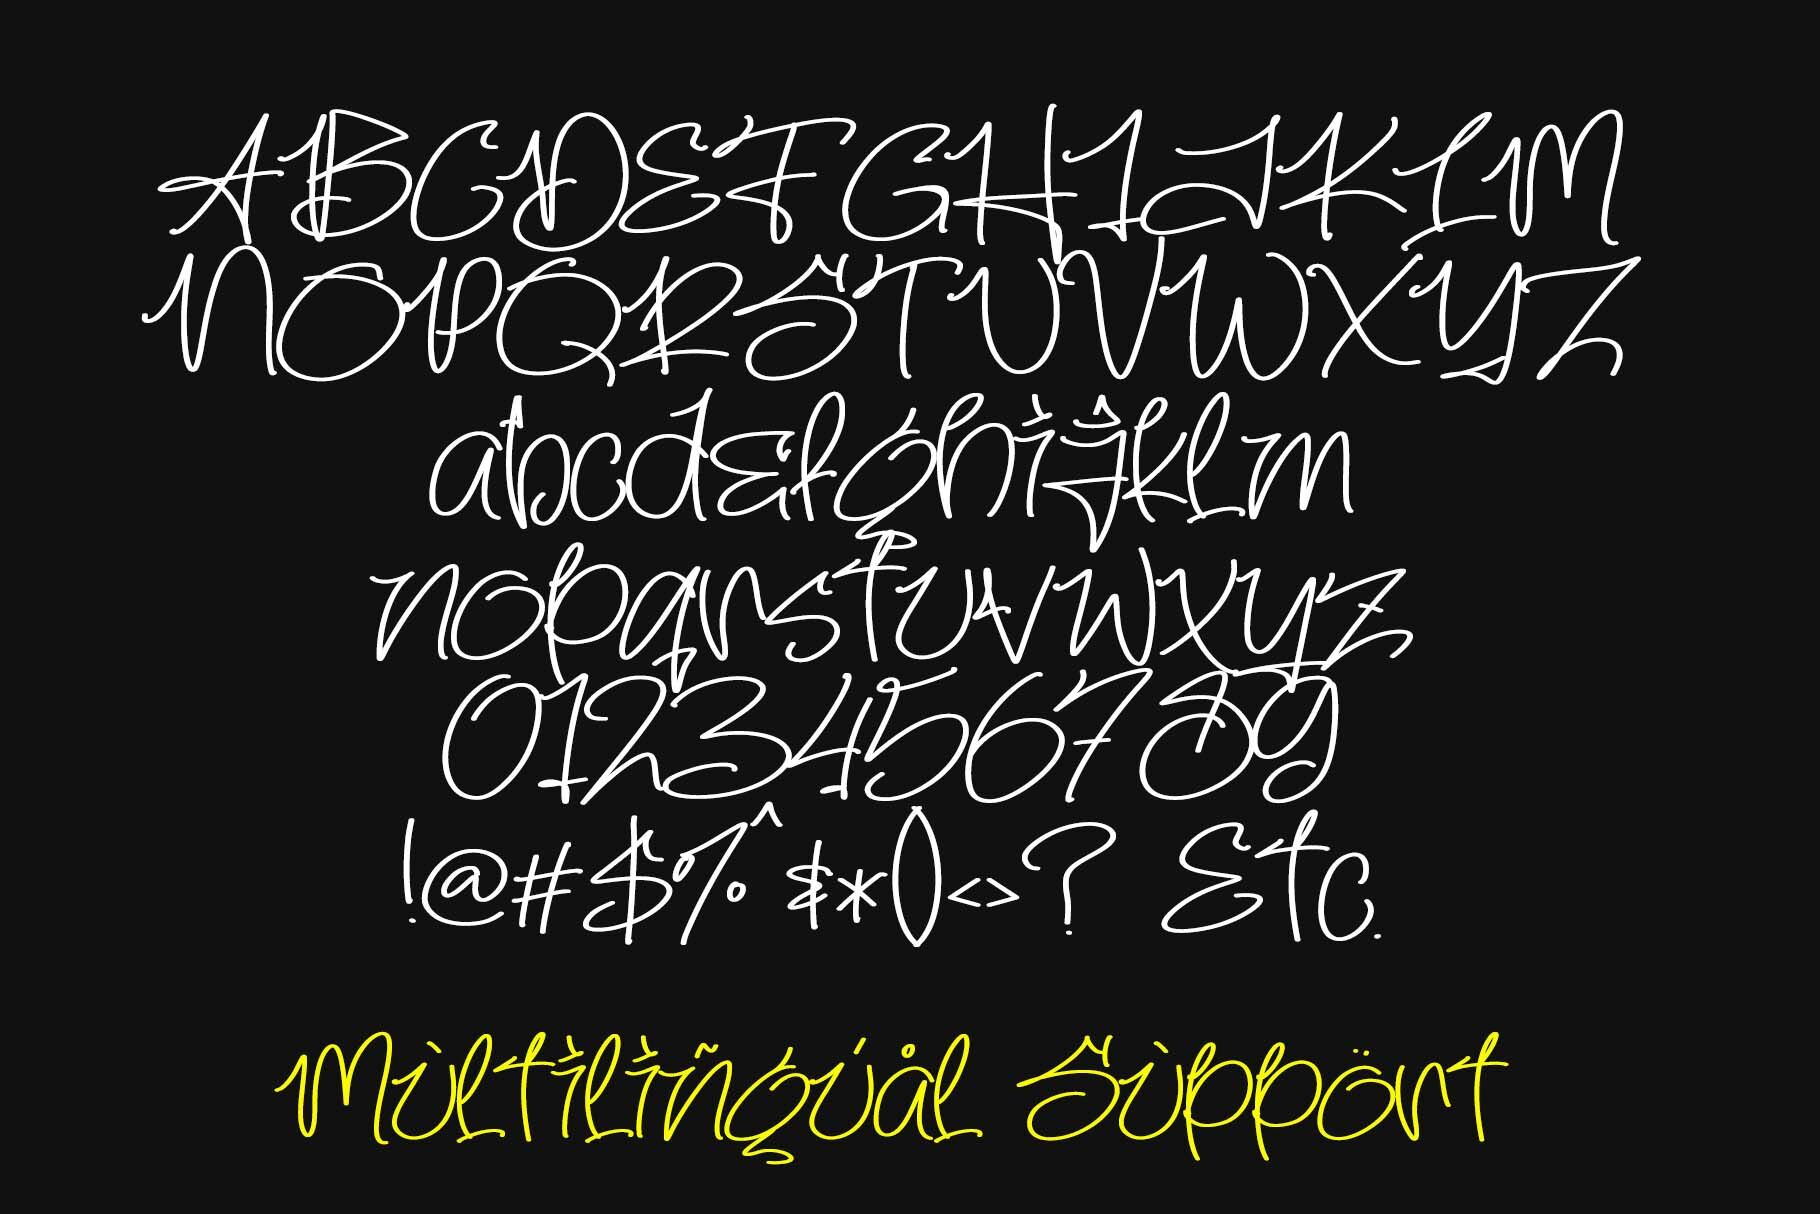 ABCDEFGHIJKLM
NOPQRSTUVWXYZ
abcdefghijklm
nopqrstuvwxyz
0123456789
!@#$%^&*()<>? Etc.
Mùltilìñgúål Sùppört